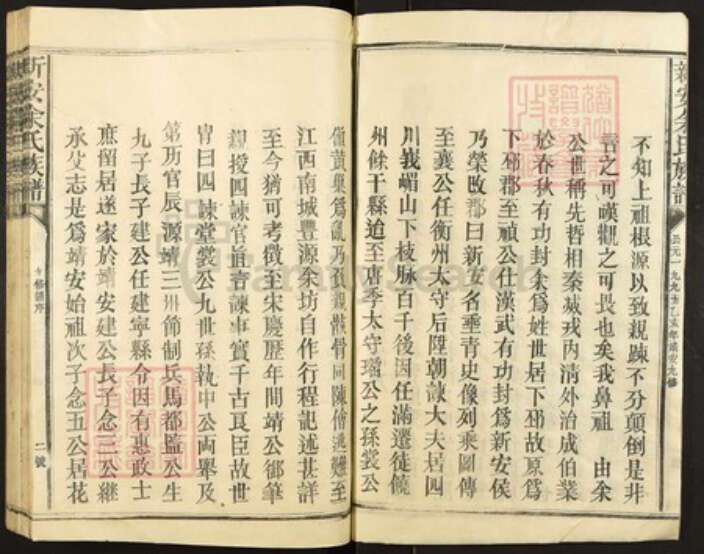 新安余氏族譜
公元一九九五乙亥年靖安九修
不知上祖根源以致親踈不分顛倒是非
言之可嘆觀之可畏也矣我鼻祖 由余
公世稱先哲相秦威戎丙清外治成伯業
於春秋有功封余爲姓世居下邳故原爲
下邳郡至禎公仕漢武有功封爲新安侯
乃榮改郡曰新安名垂青史像列乘圖傳
至襄公任衡州太守后陞朝諫大夫居四
川峩嵋山下枝脉百千後因任滿遷徒饒
州餘干縣迨至唐季太守璿公之孫裳公
值黃巢爲亂乃負親骸骨同陳僧逃難至
江西南城豐源余坊自作行程記述甚詳
至今猶可考徵至宋慶歷年間靖公御筆
親授四諫官追言諫事實千古良臣故世
冑曰四諫堂裳公九世孫執中公両舉及
第历官辰源靖三州節制兵馬都監公生
九子長子建公任建寧縣令因有惠政士
庶留居遂家於靖安建公長子念三公継
承父志是爲靖安始祖次子念五公居花
新安余氏族譜
九修譜序
二號
familysearch